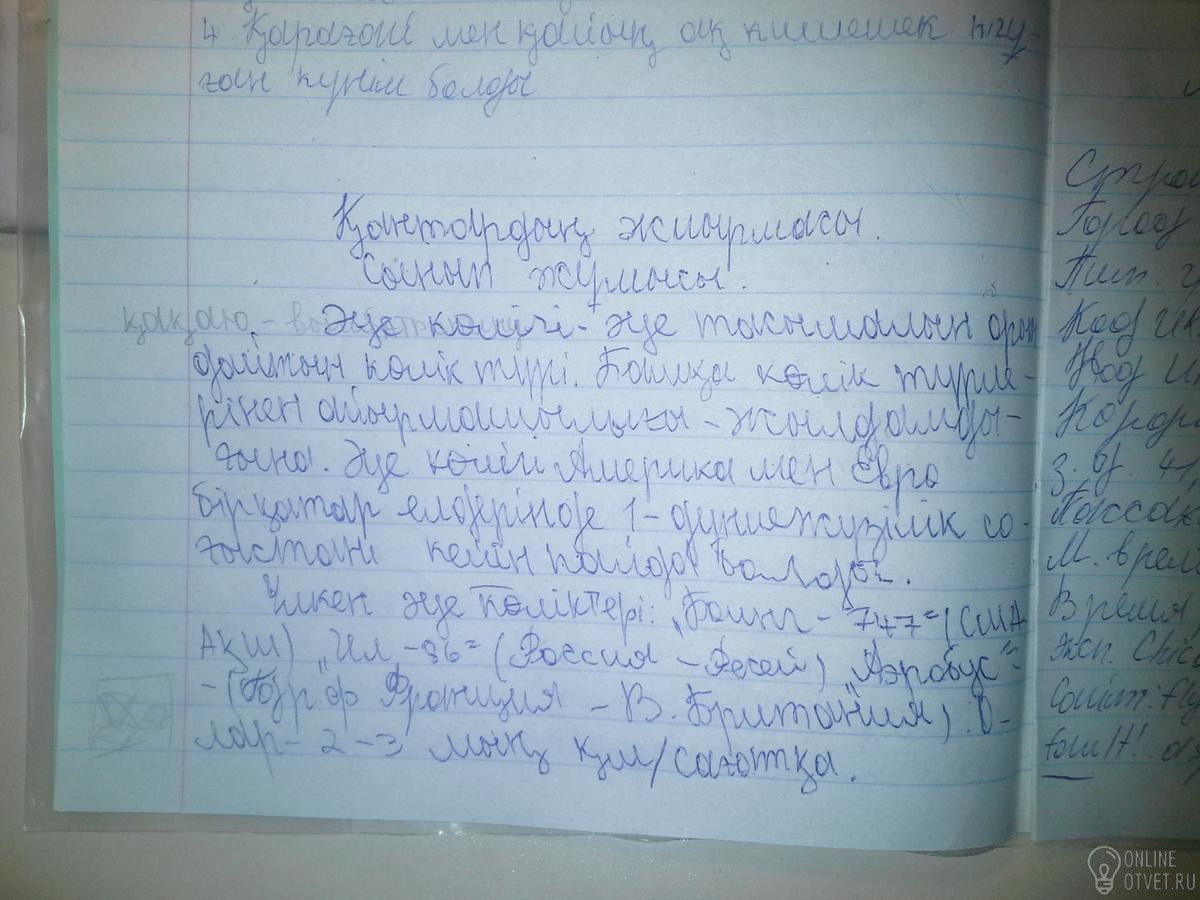 4. Қараған мен қайың ақ кимешек киу-
ған күнім болды
Қаңтардың жиырмасы.
Сынып жұмысы.
қақаю -
Әуе көлігі - әуе тасымалын орын
дайтын көлік түрі. Басқа көлік түрле-
рінен айырмашылығы - жылдамды-
ғына. Әуе көлігі Америка мен Евро
бірқатар елдерінде 1-дүниежүзілік со-
ғыстан кейін пайда болды.
Үлкен әуе көліктері: „Боинг - 747" (США
АҚШ) „Ил -86" (Россия - Ресей) „Аэробус"-
- (Франция - В. Британия). О-
лар - 2-3 мың км/сағатқа.
Город
Тип.
Код
Код
З. О.
М. врем
Время
Эксп. Chic
ONLINE
OTVET.RU